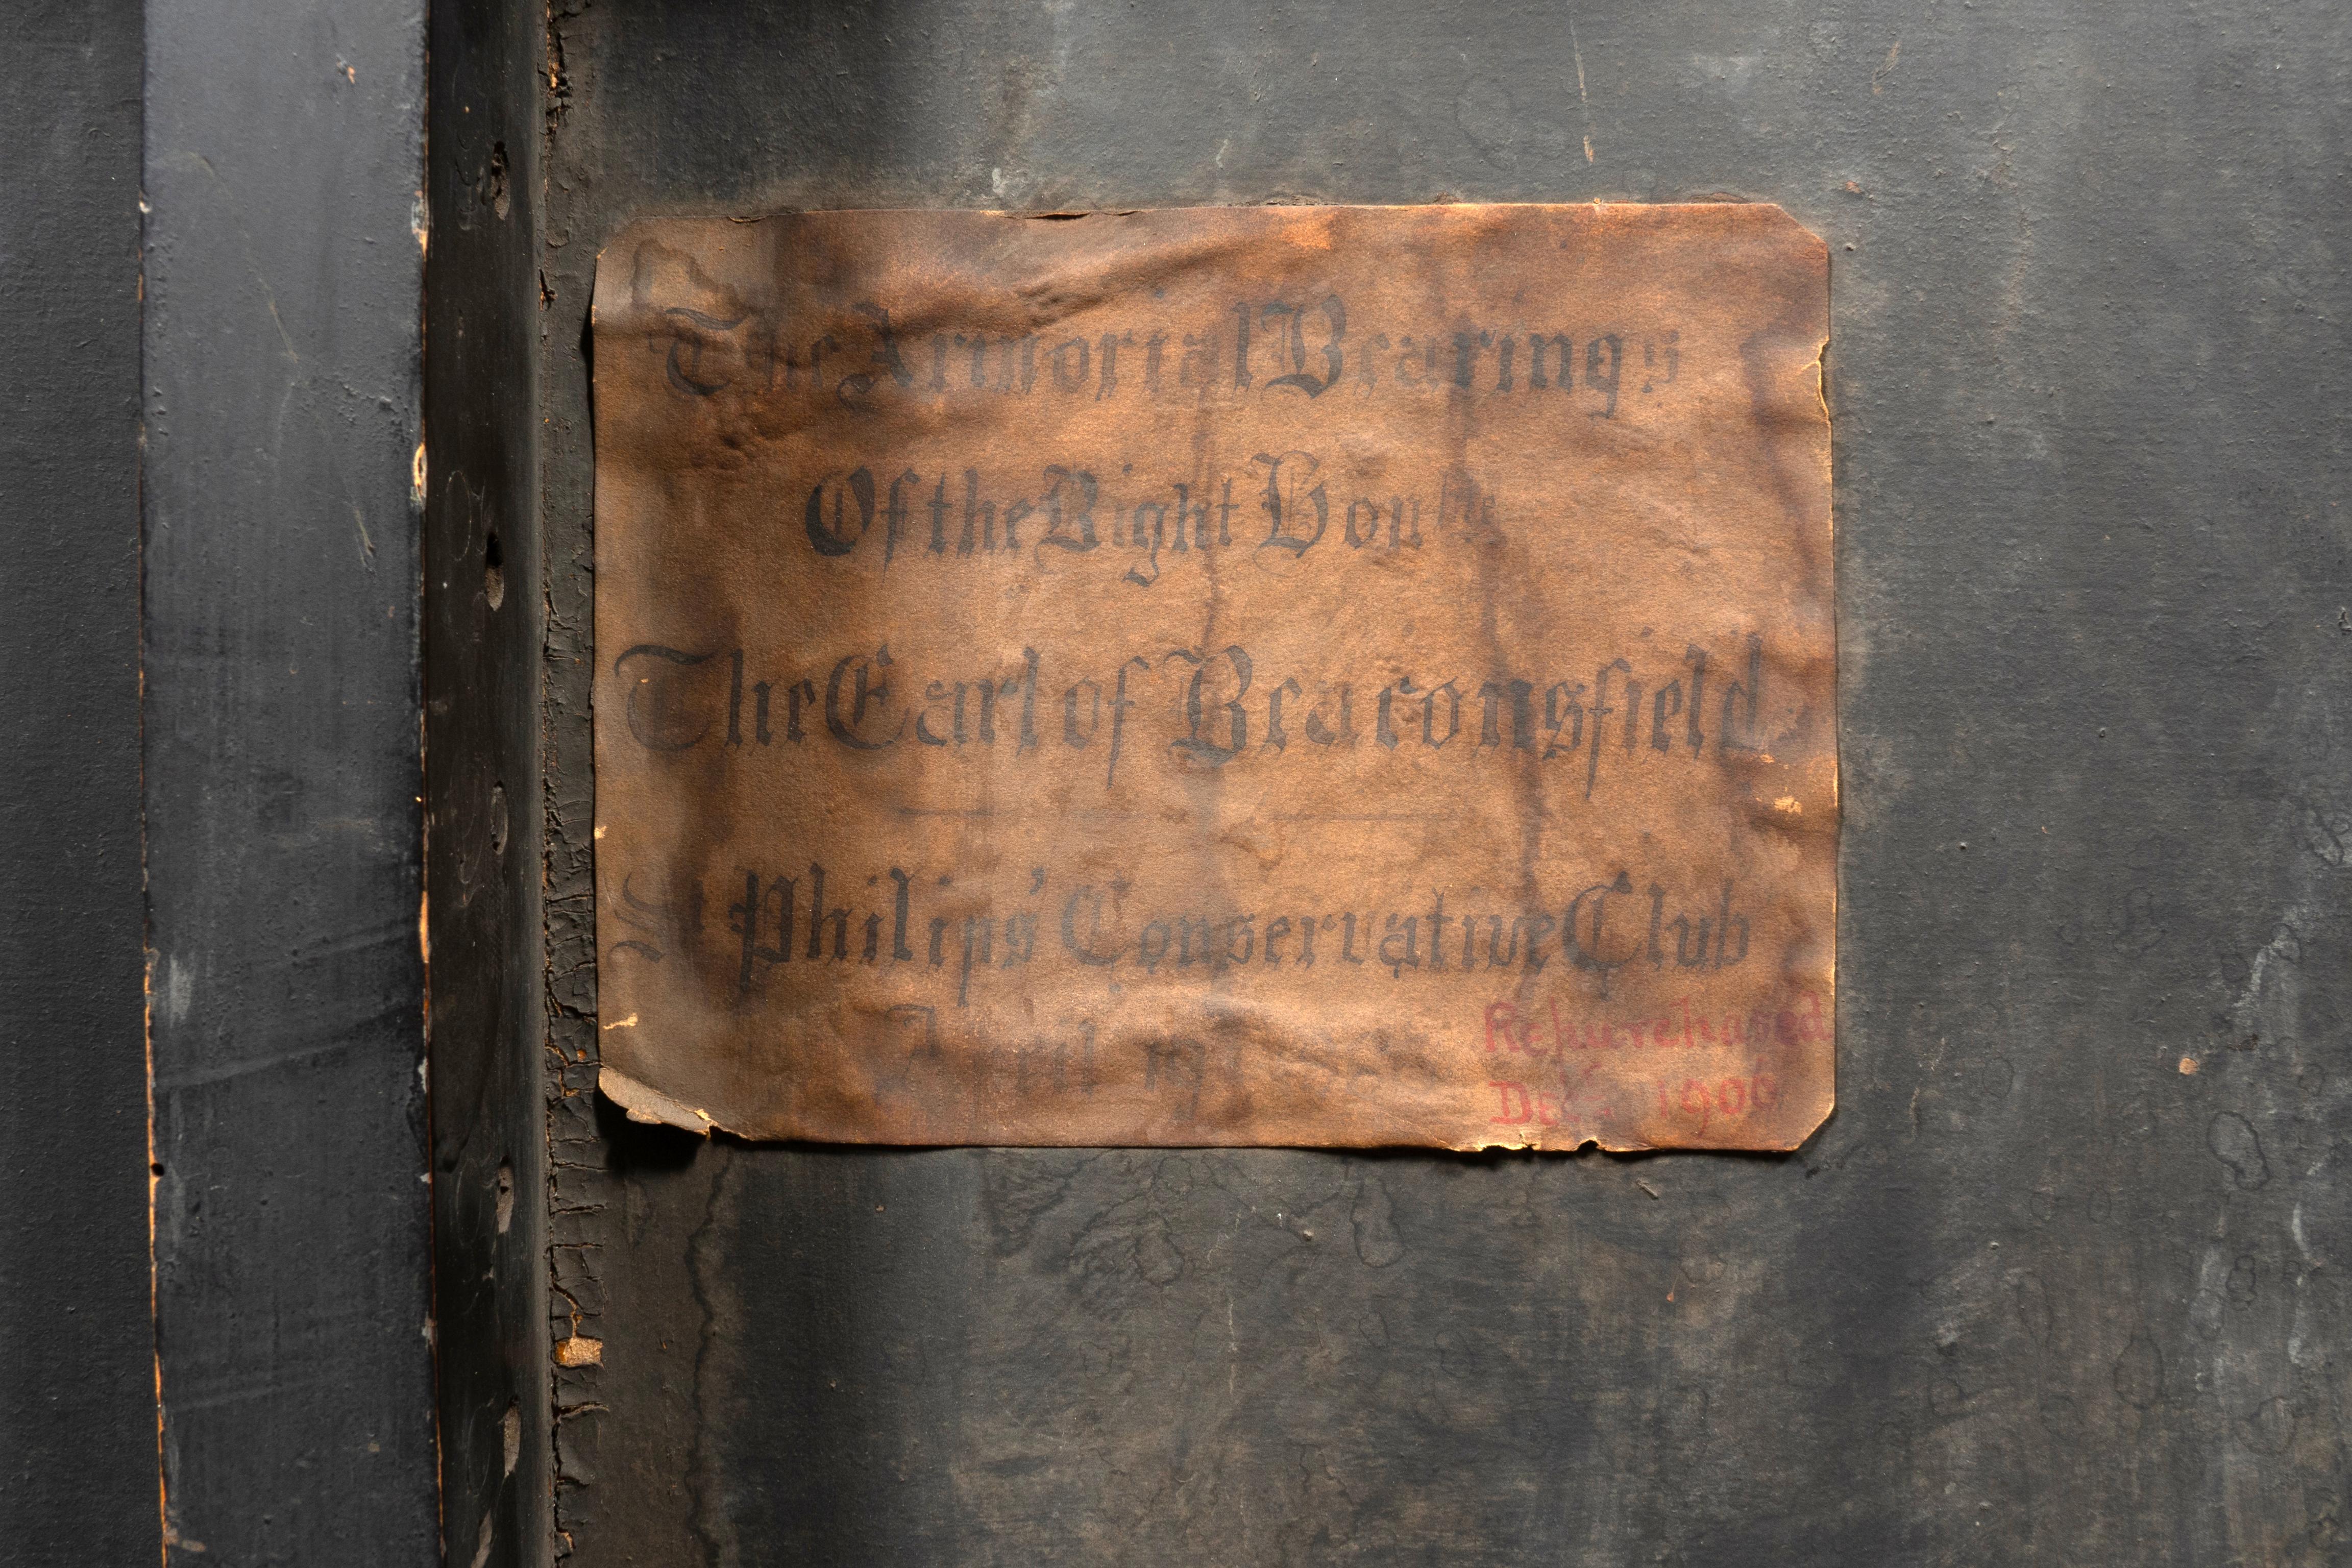 The Armorial Bearings
Of the Right Honble
The Earl of Beaconsfield
St Philips' Conservative Club
April
Repurchased
Decr 1900